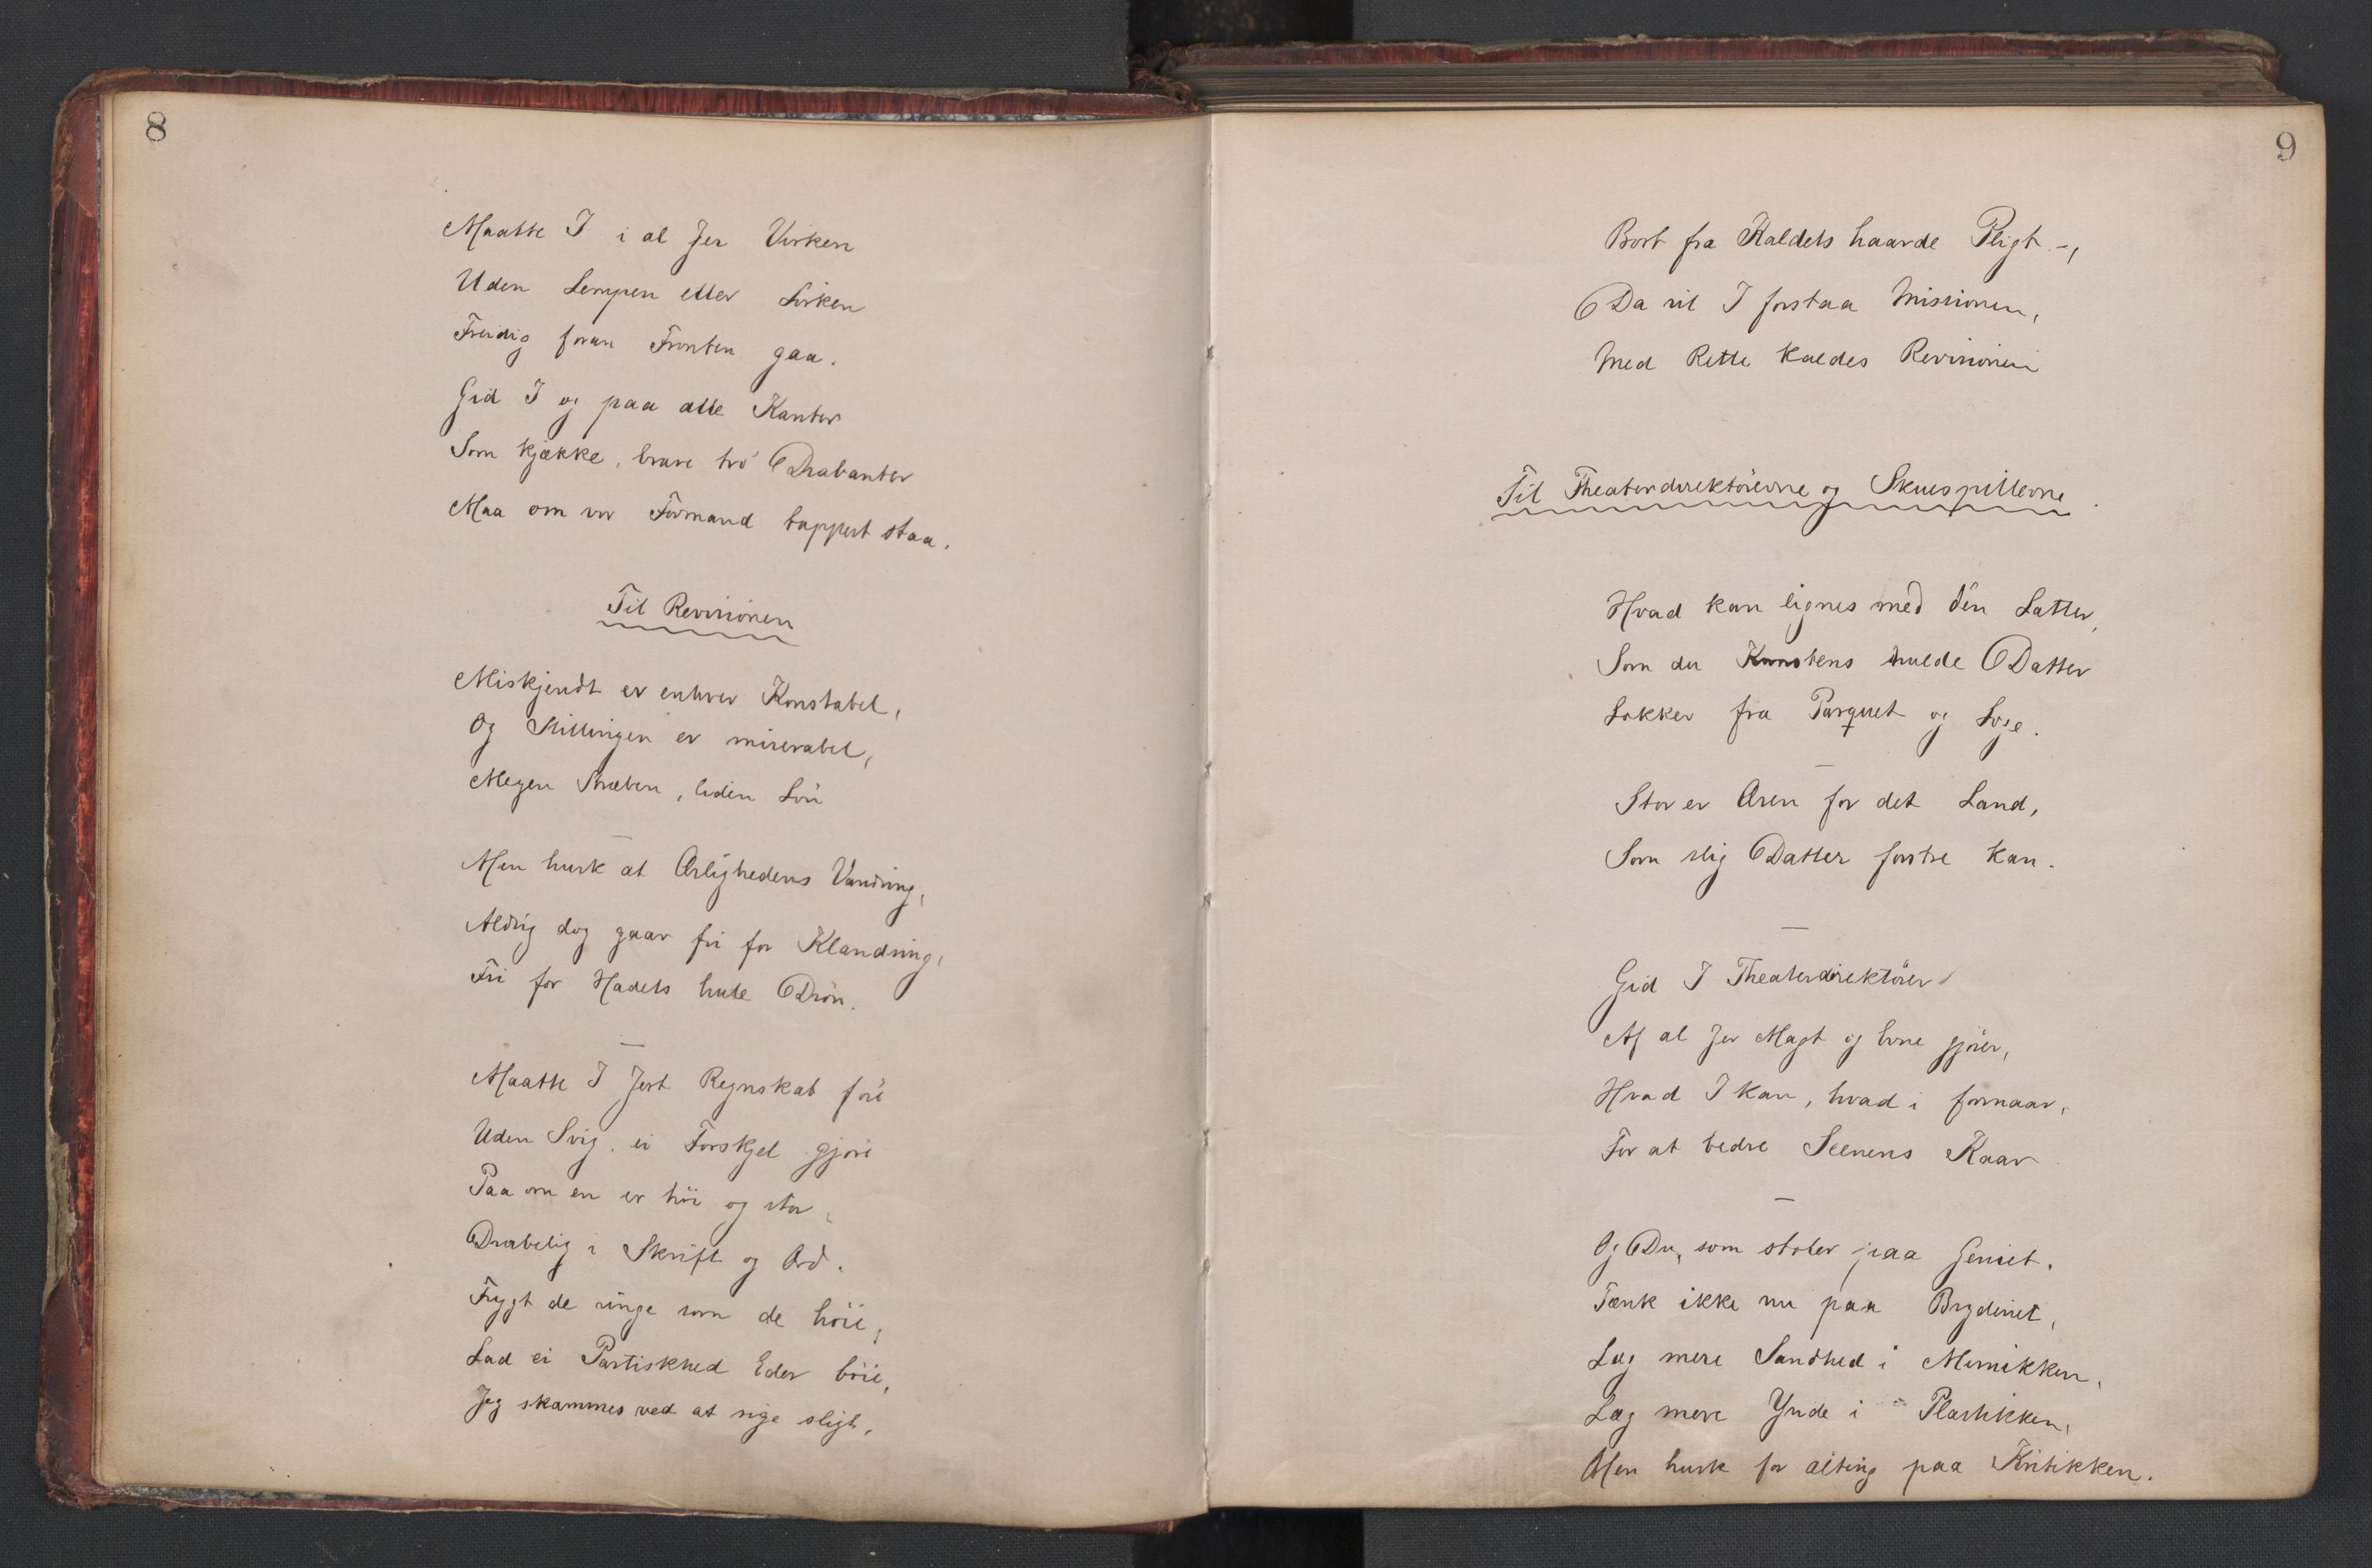 8
Maatte I i al Jer Virken
Uden Lempen eller Lirken
Freidig foran Fronten gaa.
Gid I og paa alle Kanter
Som kjække, brave tro Drabanter
Maa om vor Formand tappert staa.
Til Revisionen
Miskjendt er enhver Konstabel,
Og Stillingen er miserabel,
Megen Stræben, liden Lön
Men husk at Ærlighedens Vandring,
Aldrig dog gaar fri for Klandring,
Fri for Hadets hule Drön.
Maatte I Jert Regnskab före
Uden Svig, ei Forskjel gjöre
Paa om en er höi og stor,
Drabelig i Skrift og Ord.
Frygt de ringe som de höie,
Lad ei Partiskhed Eder böie,
Jeg skammes ved at sige sligt,
9
Bort fra Kaldets haarde Pligt -,
Da vil I forstaa Missionen,
Med Rette kaldes Revisionen
Til Theaterdirektörerne og Skuespillerne.
Hvad kan lignes med den Latter,
Som du Kunstens hulde Datter
Lokker fra Parquet og Loge.
Stor er Æren for det Land,
Som slig Datter fostre kan.
Gid I Theaterdirektörer
Af al Jer Magt og Evne gjörer,
Hvad I kan, hvad i formaar,
For at bedre Scenens Kaar
Og Du, som stoler paa Geniet.
Tænk ikke nu paa Bryderiet,
Læg mere Sandhed i Mimikken,
Læg mere Ynde i Plastikken,
Men husk for alting paa Kritikken.